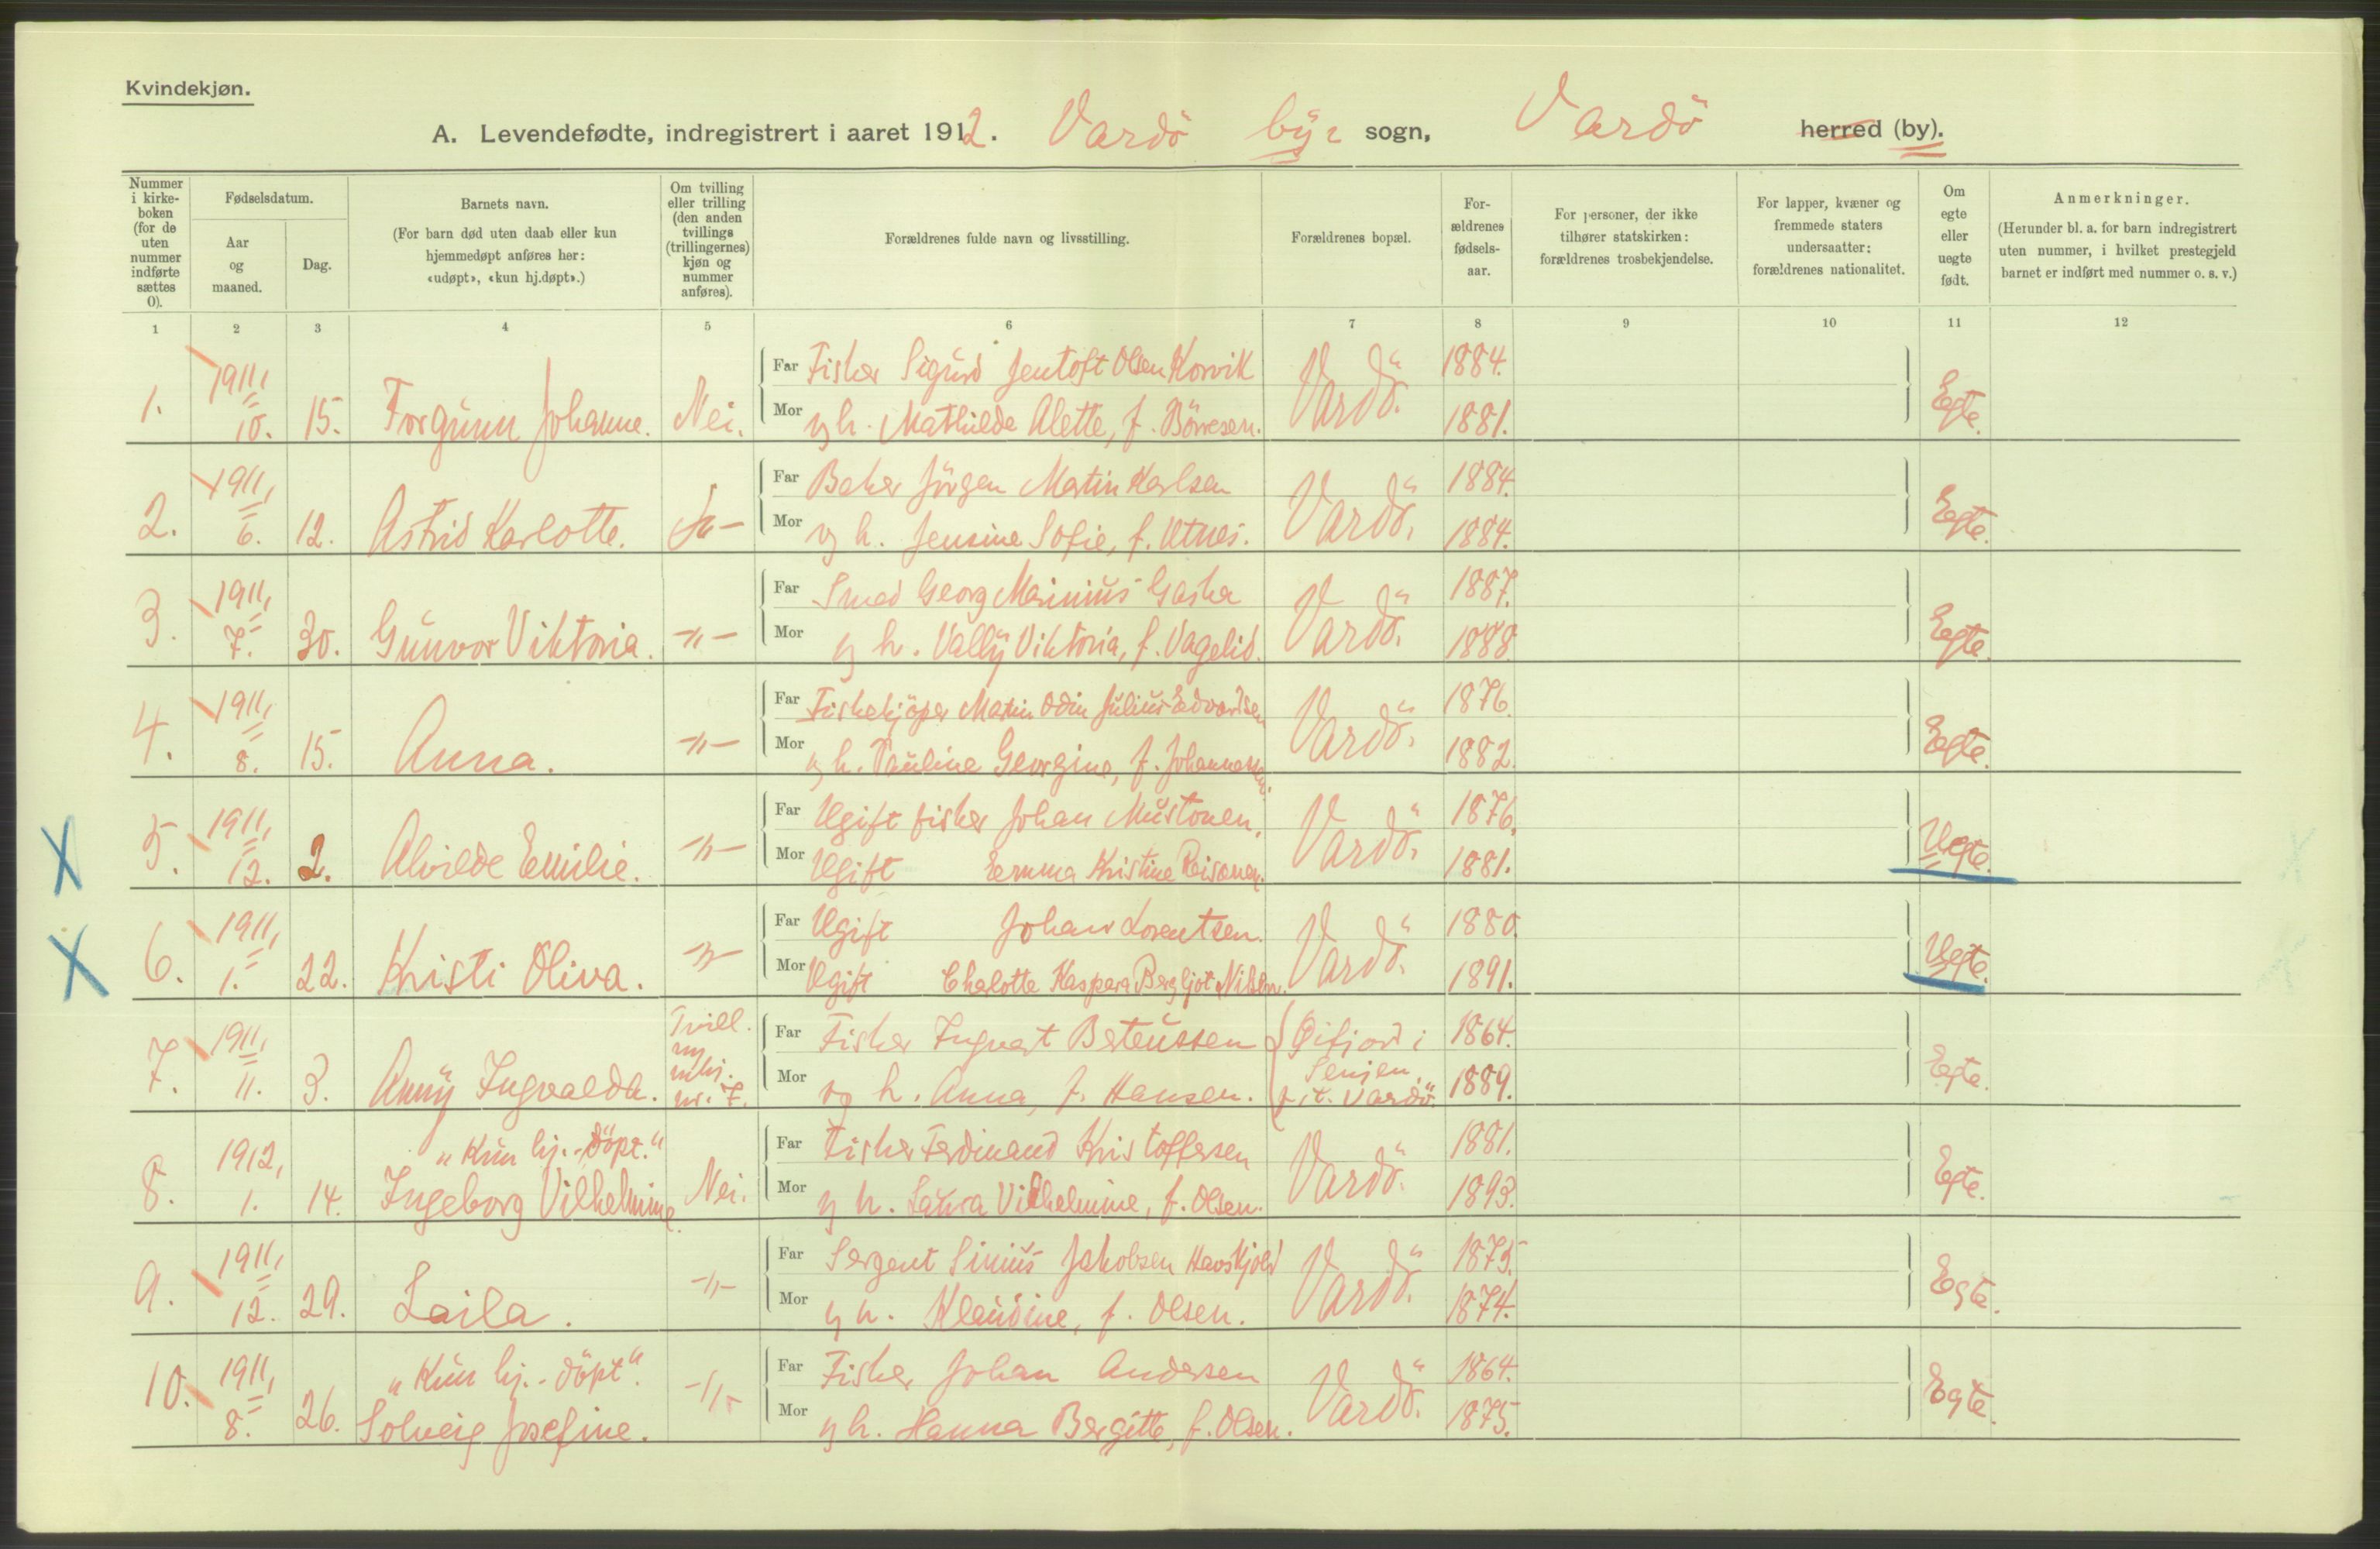 Kvindekjøn.
A. Levendefødte, indregistrert i aaret 1912. Vardö by's sogn, Vardö herred (by).
Nummer i kirke-boken (for de uten nummer indførte sættes 0).
Fødselsdatum.
Aar og maaned.
Dag.
Barnets navn.
(For barn død uten daab eller kun hjemmedøpt anføres her: «udøpt», «kun hj.døpt».)
Om tvilling eller trilling (den anden tvillings (trillingernes) kjøn og nummer anføres).
Forældrenes fulde navn og livsstilling.
Forældrenes bopæl.
For-ældrenes fødsels-aar.
For personer, der ikke tilhører statskirken: forældrenes trosbekjendelse.
For lapper, kvæner og fremmede staters undersaatter: forældrenes nationalitet.
Om egte eller uegte født.
Anmerkninger.
(Herunder bl. a. for barn indregistrert uten nummer, i hvilket prestegjeld barnet er indført med nummer o. s. v.)
1 2 3 4 5 6 7 8 9 10 11 12
1. 1911, 10. 15. Torgunn Johanne. Nei.
Far Fisker Sigurd Jentoft Olsen Korvik Vardö. 1884.
Mor og h. Mathilde Alette, f. Börresen. 1881. Egte.
2. 1911, 6. 12. Astrid Karlotte.
Far Baker Jörgen Martin Karlsen Vardö. 1884.
Mor og h. Jensine Sofie, f. Utnes. 1884. Egte.
3. 1911, 7. 30. Gunvor Viktoria. -"-
Far Smed Georg Marinius Gaska Vardö. 1887.
Mor og h. Vally Viktoria, f. Vagelid. 1888. Egte.
4. 1911, 8. 15. Anna. -"-
Far Fiskekjöper Martin Odin Julius Edvardsen Vardö. 1876.
Mor og h. Pauline Georgine, f. Johannessen. 1882. Egte.
5. 1911, 12. 2. Alvilde Emilie. -"-
Far Ugift fisker Johan Mustonen, Vardö. 1876.
Mor Ugift Emma Kristine Reisonen. 1881. Uegte.
6. 1911, 1. 22. Kristi Oliva. -"-
Far Ugift Johan Lorentsen. Vardö. 1880.
Mor Ugift Charlotte Kaspara Bergljot Nilsen. 1891. Uegte.
7. 1911, 11. 3. Anny Ingvalda. Tvill. m mkj. nr. 7.
Far Fisker Ingvart Berteussen Öifjord i 1864.
Senjen,
Mor og h. Anna, f. Hansen. p. t. Vardö. 1889. Egte.
8. 1912, 1. 14. "Kun hj.-döpt." Ingeborg Vilhelmine. Nei.
Far Fisker Ferdinand Kristoffersen Vardö. 1881.
Mor og h. Laura Vilhelmine, f. Olsen. 1893. Egte.
9. 1911, 12. 29. Laila. -"-
Far Sergent Sinius Jakobsen Havskjold Vardö. 1875.
Mor og h. Klaudine, f. Olsen. 1874. Egte.
10. 1911, 8. 26. "Kun hj.-döpt". Solveig Josefine. -"-
Far Fisker Johan Andersen Vardö. 1864.
Mor og h. Hanna Bergitte, f. Olsen. 1875. Egte.